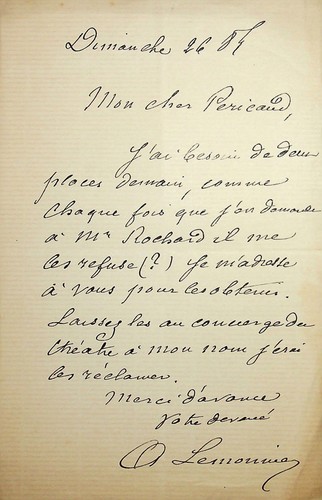 Dimanche 26
Mon cher Pericaud,
J'ai besoin de deux
places demain, comme
chaque fois que j'en demande
à Mr Rochard il me
les refuse (?) Je m'adresse
à vous pour les obtenir.
Laissez les au concierge du
théatre à mon nom j'irai
les réclamer.
Merci d'avance
Votre devoué
A Lemonnier